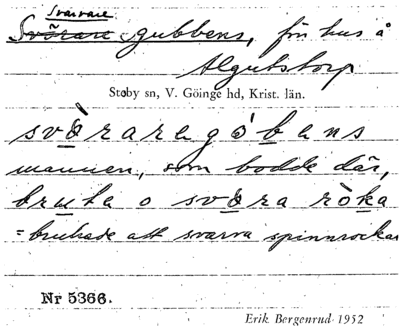 Svarvare
Svärare gubbens, för hus å
Algutstorp
Stoby sn, V. Göinge hd, Krist. län.
svàraregóbens
mannen, som bodde där,
bruta o svàra ròka
= brukade att svarva spinnrockar
Nr 5366.
Erik Bergenrud 1952